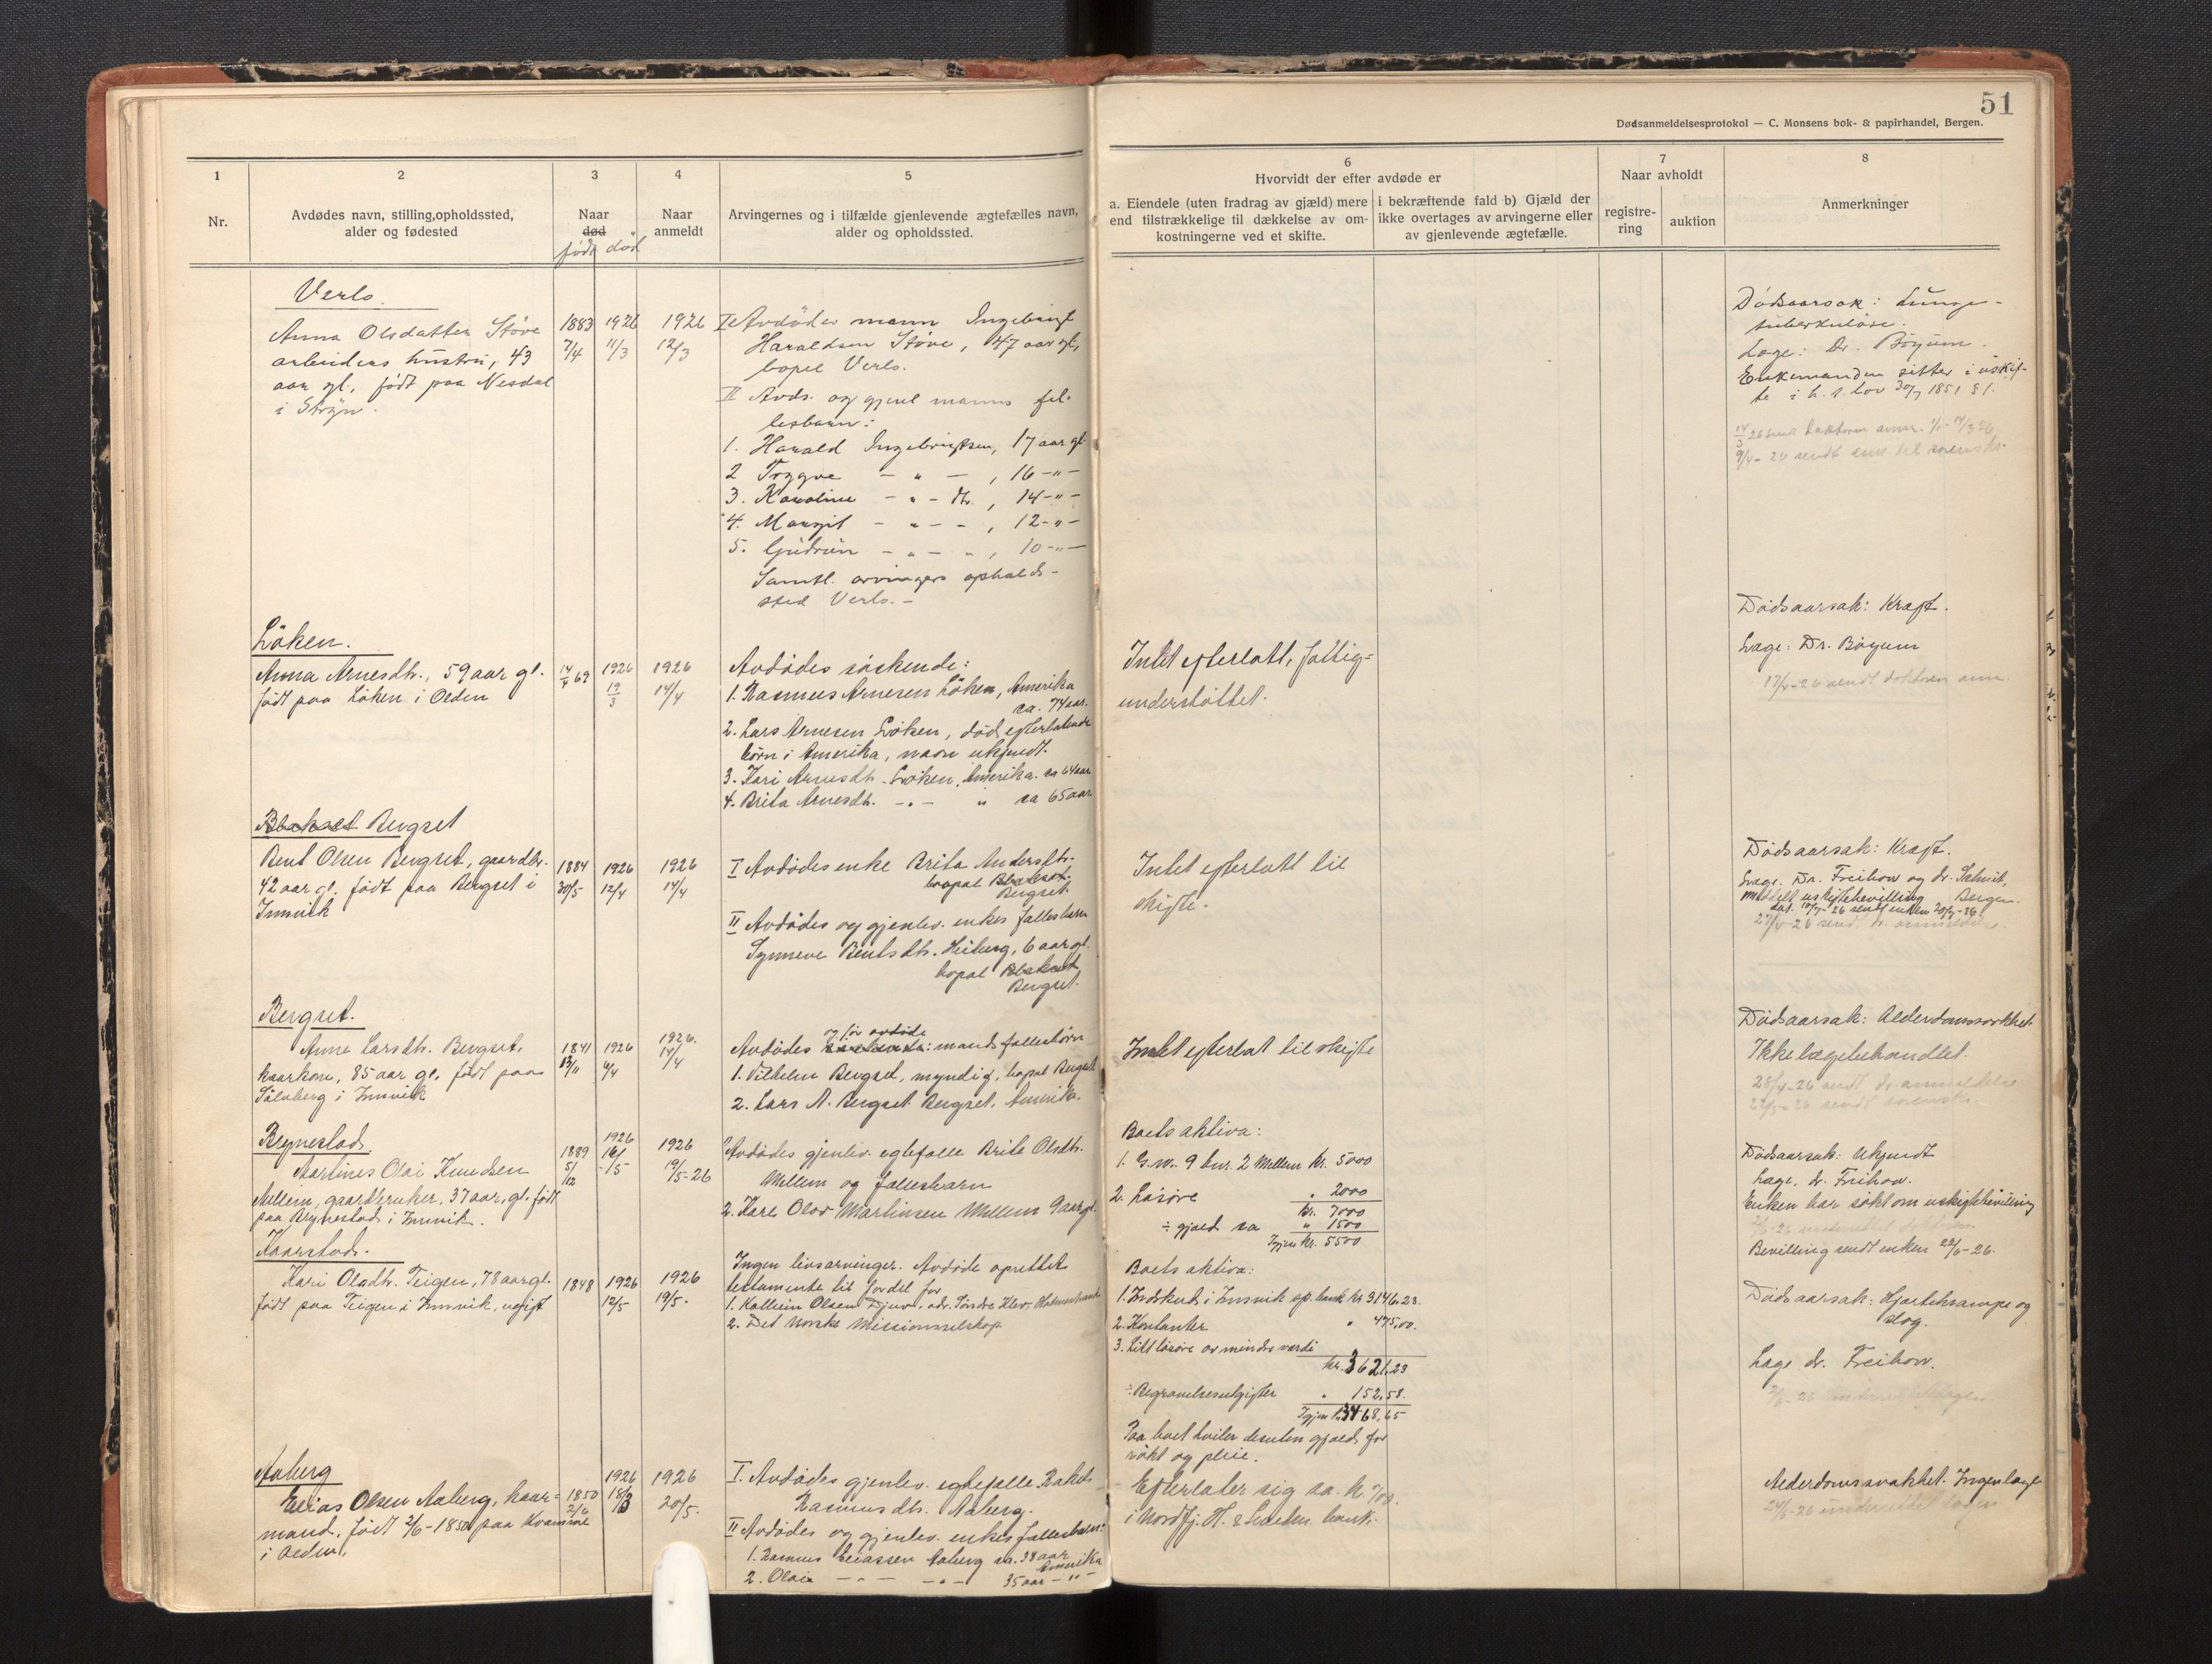 51
Dødsanmeldelsesprotokol — C. Monsens bok- & papirhandel, Bergen.
1
2
3
4
5
6
7
8
Nr.
Avdødes navn, stilling,opholdssted,
alder og fødested
Naar
død
født død
Naar
anmeldt
Arvingernes og i tilfælde gjenlevende ægtefælles navn,
alder og opholdssted.
Hvorvidt der efter avdøde er
a. Eiendele (uten fradrag av gjæld) mere
end tilstrækkelige til dækkelse av om-
kostningerne ved et skifte.
i bekræftende fald b) Gjæld der
ikke overtages av arvingerne eller
av gjenlevende ægtefælle.
Naar avholdt
registre-
ring
auktion
Anmerkninger
Verlo.
Anna Olsdatter Støve
arbeiders hustru, 43
aar gl., født paa Nesdal
i Stryn.
1883 7/4
1926 11/3
1926 12/3
I Avdødes mann Ingebrigt
Haraldsen Støve, 47 aar gl,
bopel Verlo.
II Avds. og gjenl manns fel-
lesbarn:
1. Harald Ingebrigtsen, 17 aar gl
2 Trygve - " - , 16 -"-
3. Karoline - " - dtr. , 14 -"-
4. Margit - " - - , 12 -"-
5. Gudrun - " - " , 10 -"-
Samtl. arvingers opholds-
sted Verlo. -
Dødsaarsak: Lunge-
tuberkulose.
Læge: Dr. Bøyum.
Enkemanden sitter i uskif-
te i h. t. lov 30/7 1851 § 1.
Løken.
Anna Arnesdtr., 59 aar gl.
født paa Løken i Olden
14/4 69
1926 19/3
1926 14/4
Avdødes søskende:
1. Rasmus Arnesen Løken, Amerika
ca. 74 aar.
2. Lars Arnesen Løken, død, efterlatende
børn i Amerika, navn ukjendt.
3. Kari Arnesdtr. Løken, Amerika. ca 64 aar
4. Brita Arnesdtr. - " - " ca 65 aar
Intet efterlatt, fattig=
understøttet.
Dødsaarsak: Kræft.
Læge: Dr. Bøyum
17/4-26 sendt doktoren anm.
Blakset Bergset
Bent Olsen Bergset, gaardbr.
42 aar gl. født paa Bergset i
Innvik
1884 30/5
1926 12/4
1926 14/4
I Avdødes enke Brita Andersdtr.
bopal Blakset.
Bergset.
II Avdødes og gjenlev. enkes fellesbarn
Synneve Bentsdtr. Heiberg, 6 aar gl.
bopal Blakset
Bergset.
Intet efterlatt til
skifte.
Dødsaarsak: Kræft.
Læge: Dr. Freihow og dr.
Bergen.
meddelt uskiftebevilling
Bergset.
Anne Larsdtr. Bergset,
kaarkone, 85 aar gl., født paa
Sølvberg i Innvik
1841 13/11
1926 4/4
1926. 14/4
og før avdøde
Avdødes mands fællesbørn
1. Vilhelm Bergset, myndig, bopal Bergset
2. Lars A. Bergset. Bergset. Innvik.
Intet efterlat til skifte
Dødsaarsak: Alderdomssvækket.
Ikke lægebehandlet.
28/4-26 sendt dr. anmeldelse
Brynestad.
Martines Olai Knudsen
Mellem, gaardbruker, 37 aar, gl. født
paa Brynestad i Innvik.
1889 5/12
1926 16/ -/5
1926 19/5-26
Avdødes gjenlev. egtefælle Brite Olsdtr.
Mellem og fællesbarn
2. Karl Olav Martinsen Mellem 9 aar gl.
Boets aktiva:
1. G.nr. 9 bnr. 2 Mellem Kr. 5000
2. Løsøre " 2000
Kr. 7000
÷ gjæld ca " 1500
Igjen kr. 5500
Dødsaarsak: Ukjendt
Læge, dr. Freihow.
Enken har søkt om uskiftebevilling
Bevilling sendt enken 22/6-26.
Kaarstad.
Kari Olsdtr. Teigen, 78 aar gl.
født paa Teigen i Innvik, ugift
1848
1926 12/5
1926 19/5.
Ingen livsarvinger. Avdøde oprettet
testamente til fordel for
1. Kallein Olsen Djuv, adr. Søndre Klev, Holmestrand
2. Det norske Missionsselskap
Boets aktiva:
1. Indskud i Innvik sp.bank kr 3146,23.
2. Kontanter " 475,00.
3. Litt løsøre av mindre verdi
kr. 3621,23
÷ Begravelsesutgifter " 152,58.
Igjen kr. 3468,65
Paa boet hviler desuten gjæld for
røkt og pleie.
Dødsaarsak: Hjertekrampe og
slag.
Læge dr. Freihow.
Aaberg
Elias Olsen Aaberg, kaar=
mand, født 2/6-1850 paa Kvamme
i Olden,
1850 2/6
1926 18/3
1926 20/5.
I. Avdødes gjenlev. egtefælle Rakel
Rasmusdtr. Aaberg.
II Avdødes og gjenlev. enkes fællesbarn:
1. Rasmus Eliassen Aaberg ca. 38 aar
Amerika
2. Olai - " - - " - 35 aar - " -
Efterlater sig ca. kr. 700.
i Nordfj. H. &
Alderdomssvakhet. Ingen læge
24/6-26 underrettet lægen